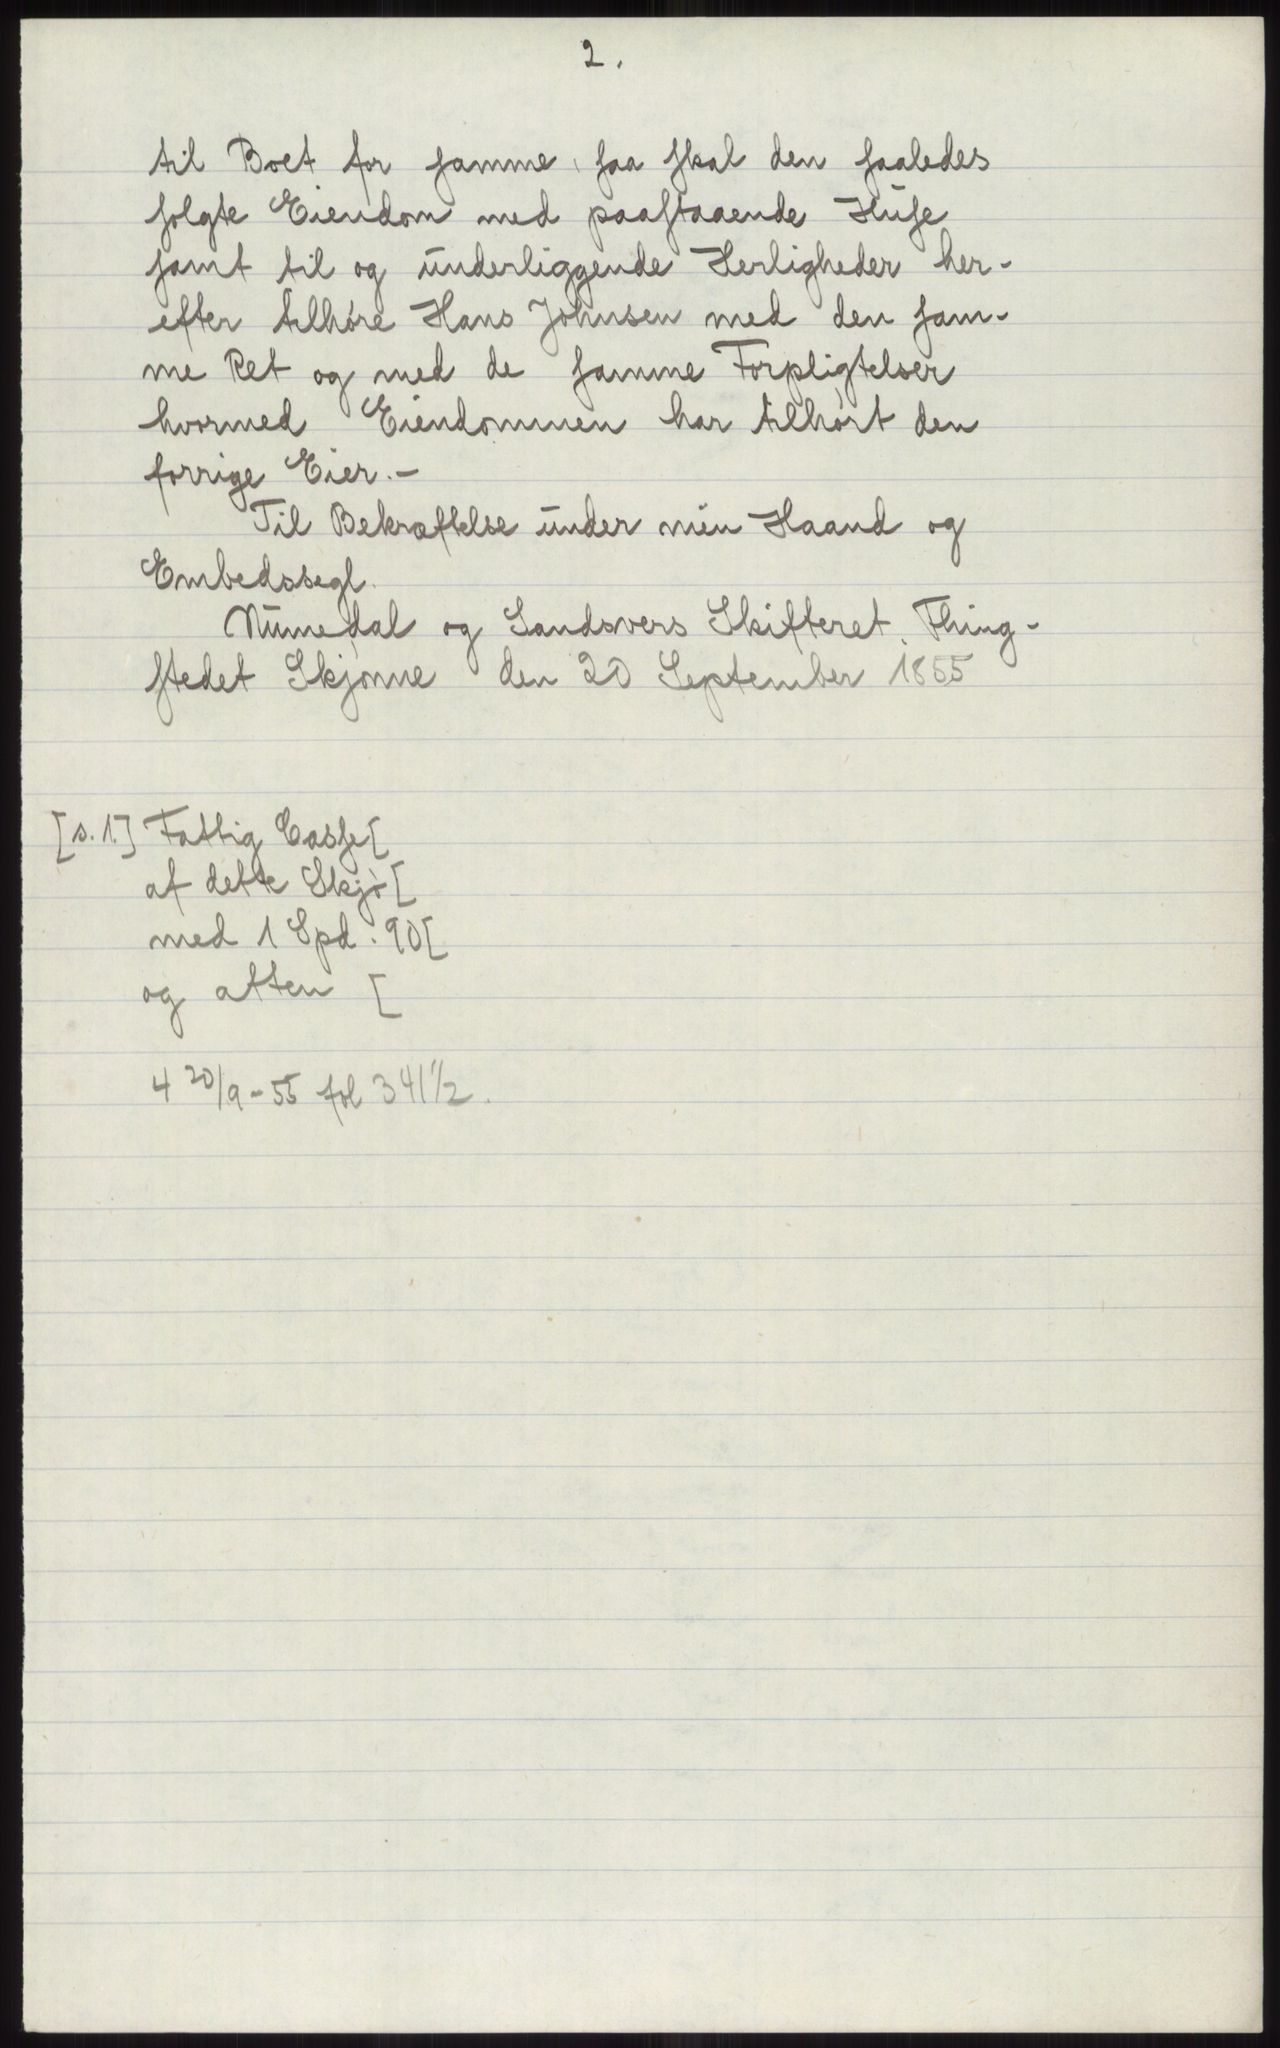 2.
til Boet for samme, saa skal den saaledes
solgte Eiendom med paastaaende Huse
samt til og underliggende Herligheder her-
efter tilhøre Hans Johnsen med den sam-
me Ret og med de samme Forpligtelser
hvormed Eiendommen har tilhørt den
forrige Eier.-
Til Bekræftelse under min Haand og
Embedssegl.
Numedal og Sandsvers Skifteret, Thing-
stedet Skjønne den 20 September 1855
[s. 1.] Fattig Casse[
af dette Skjø[
med 1 Spd. 90[
og atten [
4 20/9-55 fol 341 1/2.